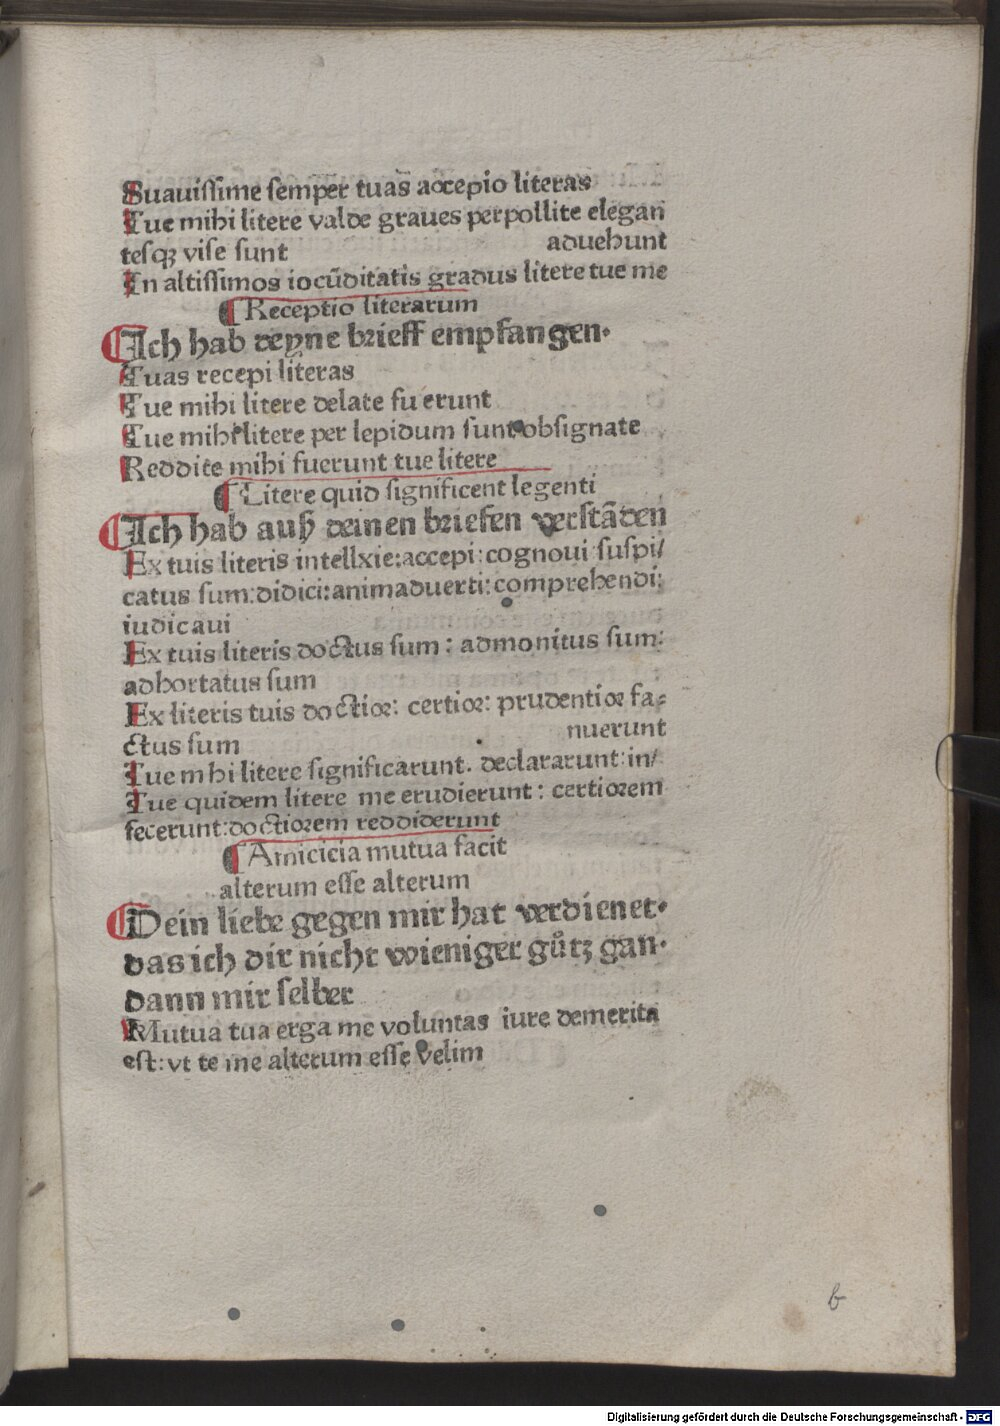 Suauissime semper tuas accepio literas
Tue mihi litere valde graues perpollite elegan
tesqꝫ vise sunt aduehunt
In altissimos iocūditatis gradus litere tue me
¶ Receptio literarum
Ich hab deyne brieff empfangen.
Tuas recepi literas
Tue mihi litere delate fuerunt
Tue mihi litere per lepidum sunt obsignate
Reddite mihi fuerunt tue litere
¶ Litere quid significent legenti
Ich hab auß deinen briefen verstāden
Ex tuis literis intellxie:accepi:cognoui suspi/
catus sum:didici:animaduerti:comprehendi:
iudicaui
Ex tuis literis doctus sum: admonitus sum:
adhortatus sum
Ex literis tuis doctior: certior: prudentior fa⸗
ctus sum nuerunt
Tue mhi litere significarunt. declararunt:in/
Tue quidem litere me erudierunt: certiorem
fecerunt:doctiorem reddiderunt
¶ Amicicia mutua facit
alterum esse alterum
Dein liebe gegen mir hat verdienet.
das ich dir nicht wieniger gůtz gan.
dann mir selber
Mutua tua erga me voluntas iure demerita
est:vt te me alterum esse velim
b
Digitalisierung gefördert durch die Deutsche Forschungsgemeinschaft - DFG